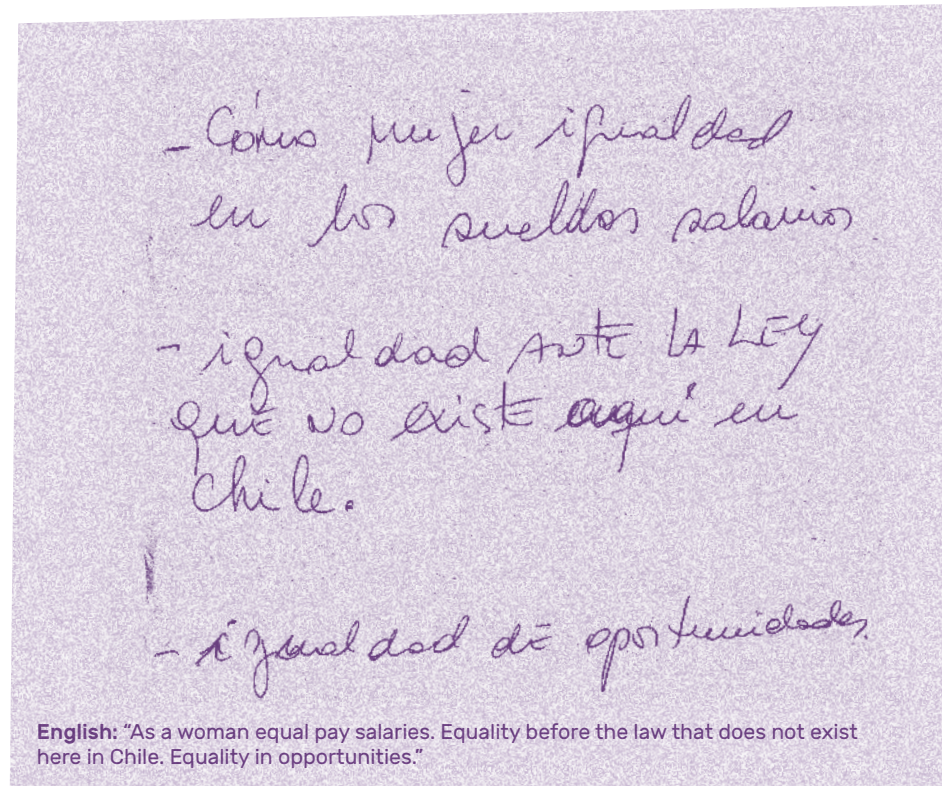 - Cómo mujer igualdad
en los sueldos salarios
- igualdad ANTE LA LEY
que NO existe aquí en
Chile.
- igualdad de oportunidades.
English: “As a woman equal pay salaries. Equality before the law that does not exist
here in Chile. Equality in opportunities.”